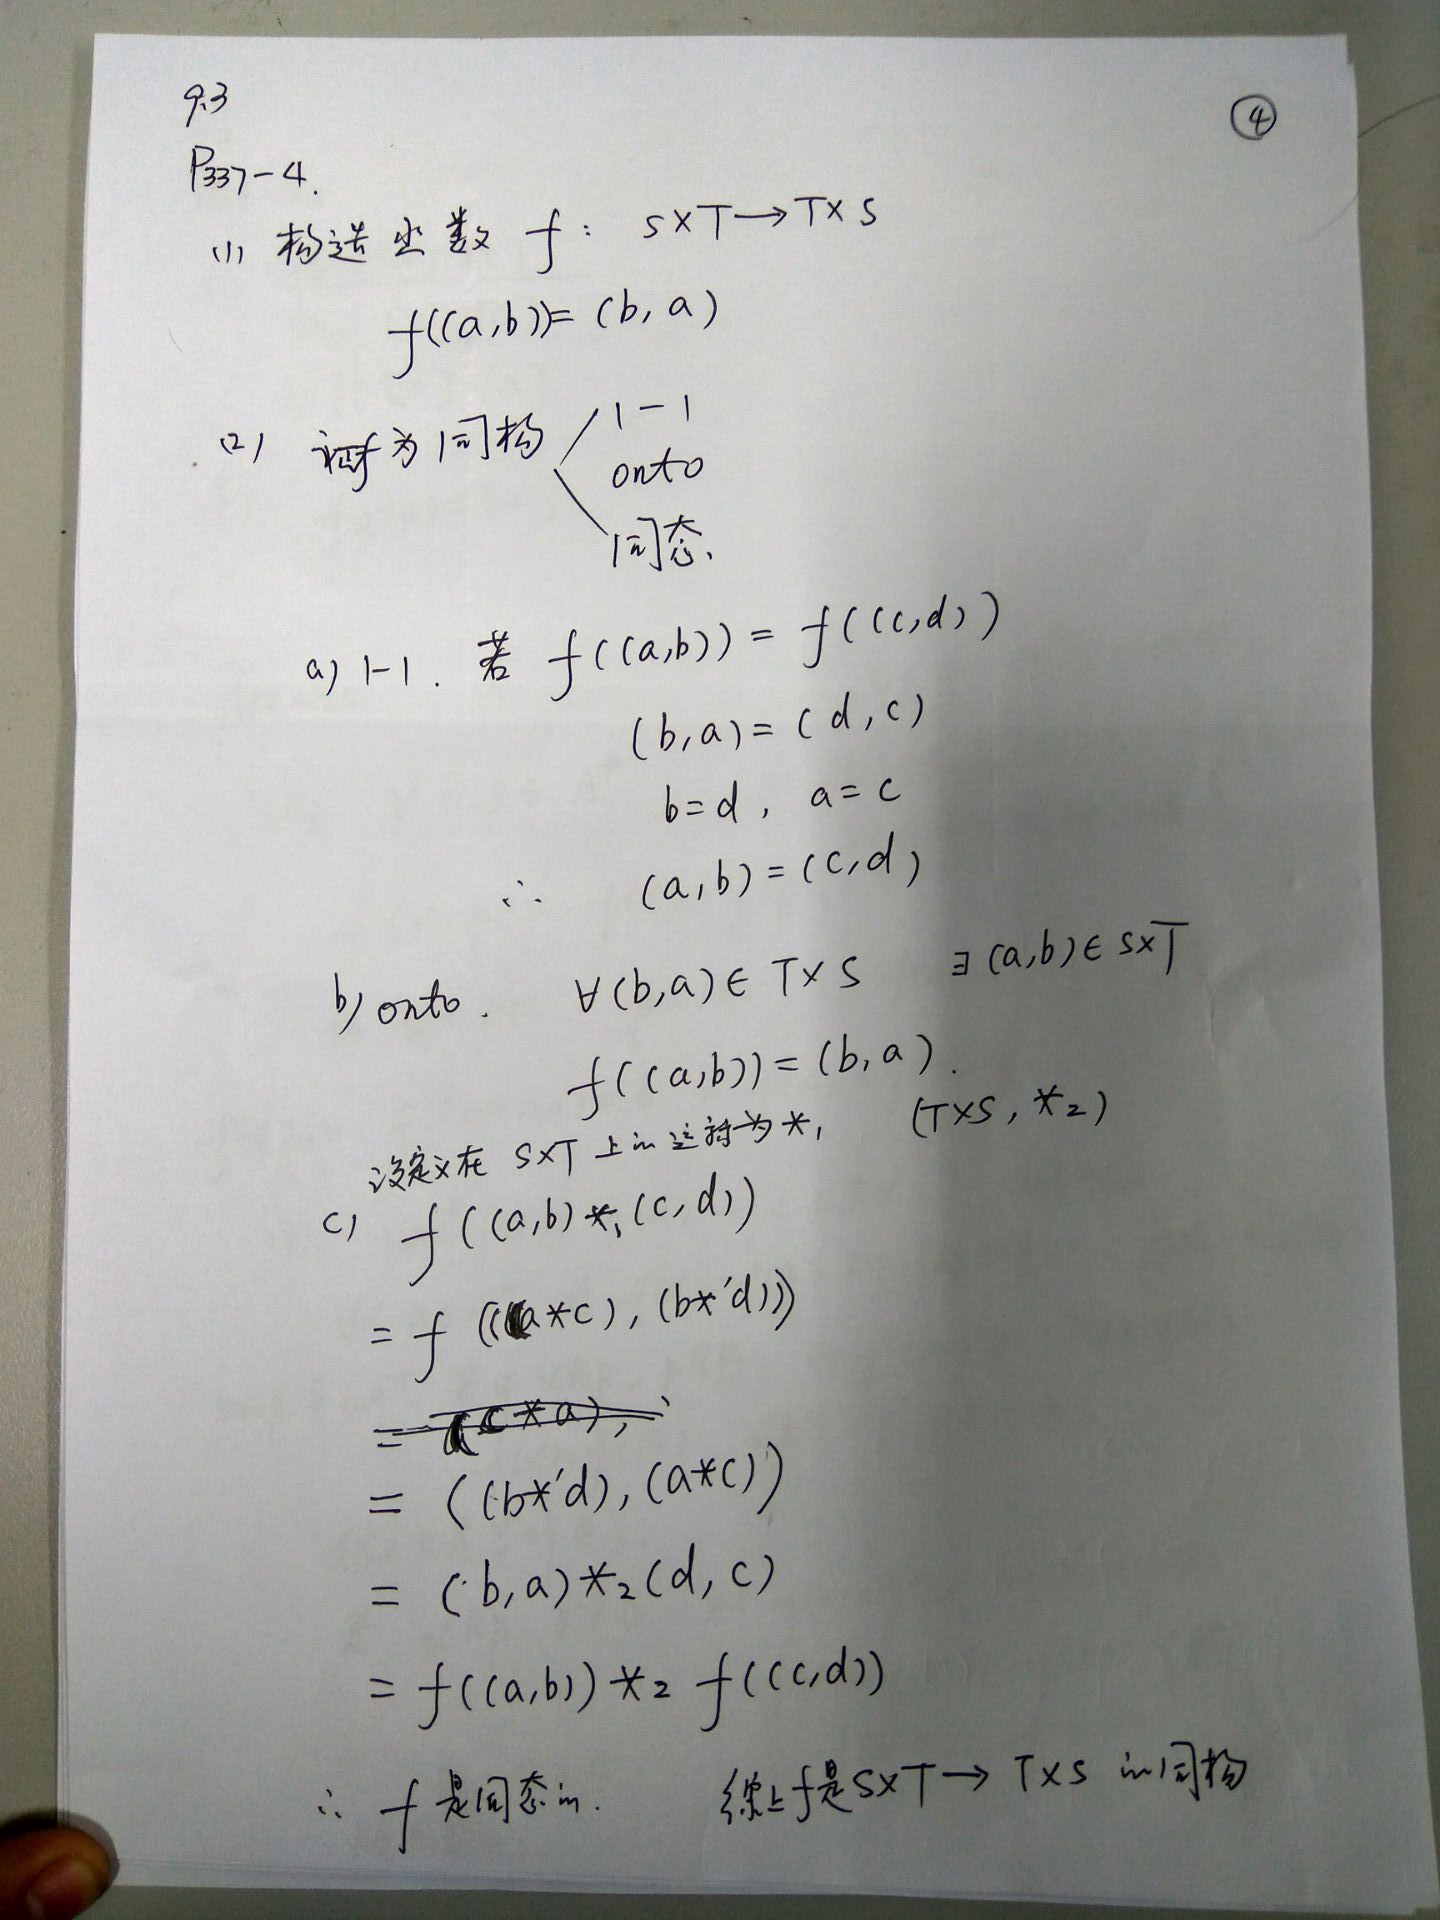 9.3
④
P337-4.
(1) 构造函数 f: S×T→T×S
f((a,b))=(b,a)
(2) 证f为同构
1-1
onto
同态.
a) 1-1. 若 f((a,b)) = f((c,d))
(b,a)=(d,c)
b=d, a=c
∴ (a,b)=(c,d)
b) onto. ∀(b,a)∈T×S ∃(a,b)∈S×T
f((a,b))=(b,a).
设定义在 S×T 上的运算为 *₁ (T×S, *₂)
c) f((a,b)*₁(c,d))
= f(((a*c),(b*'d)))
= ((c*a),
= ((b*'d),(a*c))
= (b,a)*₂(d,c)
= f((a,b))*₂ f((c,d))
∴ f是同态的. 综上f是S×T→T×S的同构